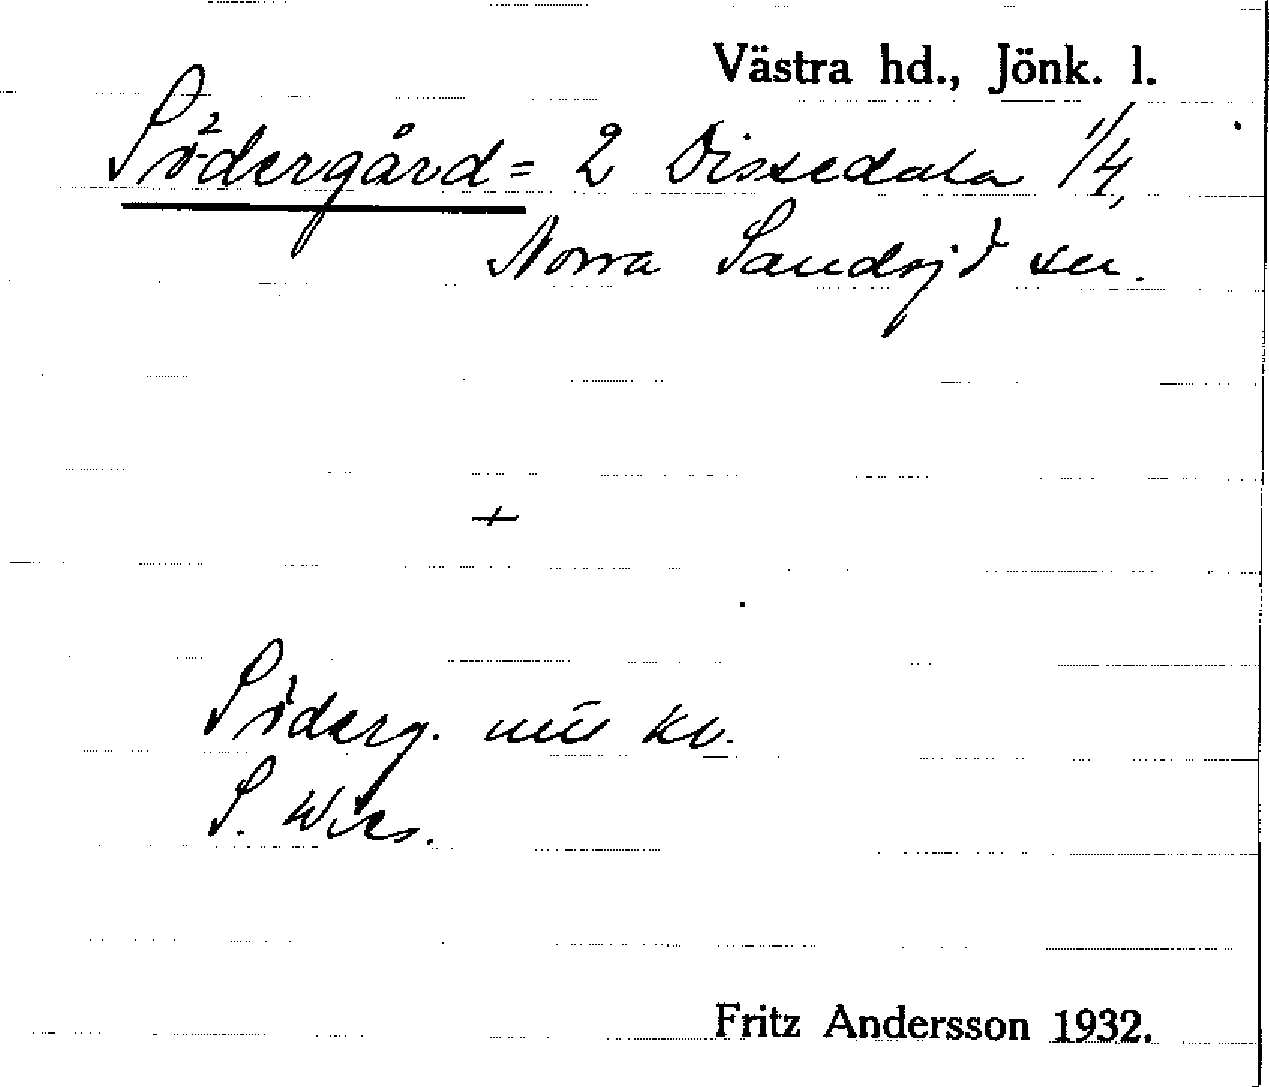 Västra hd., Jönk. l.
Södergård = 2 Dissedala 1/4,
Norra Sandsjö sn.
+
Söderg. 
S.
Fritz Andersson 1932.